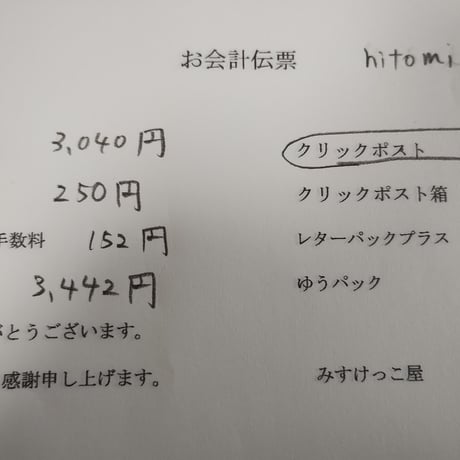 お会計伝票 hitomi
3,040円 クリックポスト
250円 クリックポスト箱
手数料 152円 レターパックプラス
3,442円 ゆうパック
がとうございます。
感謝申し上げます。 みすけっこ屋